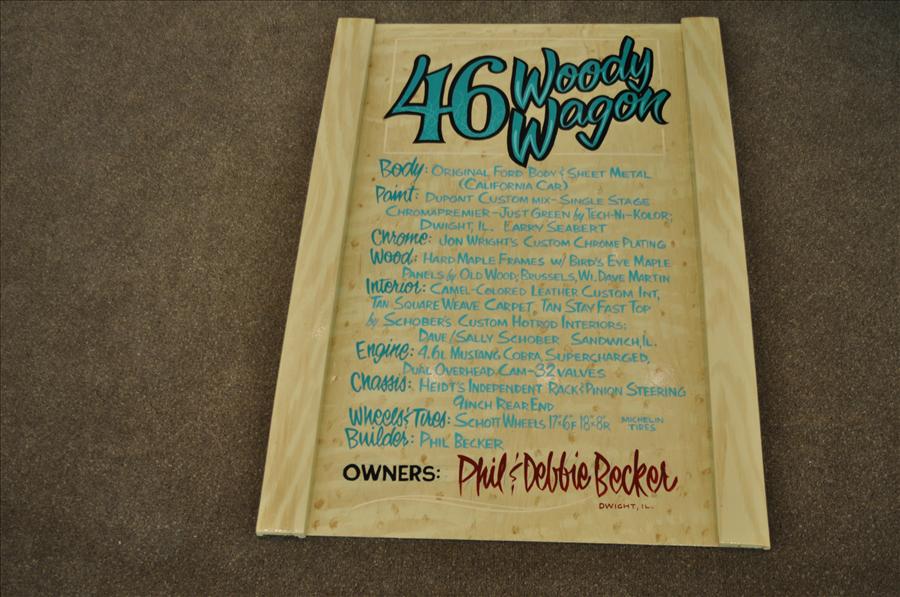 46 Woody
Wagon
Body: Original Ford Body & Sheet Metal
(California Car)
Paint: Dupont Custom mix - Single Stage
Chromapremier - Just Green by Tech-Ni-Kolor;
Dwight, IL. Larry Seabert
Chrome: Jon Wright's Custom Chrome Plating
Wood: Hard Maple Frames w/ Bird's Eye Maple
Panels by Old Wood, Brussels, Wi. Dave Martin
Interior: Camel-Colored Leather Custom Int,
Tan Square Weave Carpet, Tan Stay Fast Top
by Schober's Custom Hotrod Interiors;
Dave/Sally Schober Sandwich, IL.
Engine: 4.6L Mustang Cobra, Supercharged,
Dual Overhead Cam - 32 valves
Chassis: Heidt's Independent Rack & Pinion Steering
9 inch Rear End
Wheels & Tires: Schott Wheels 17"x6"F 18"x8"R Michelin Tires
Builder: Phil Becker
OWNERS: Phil & Debbie Becker
DWIGHT, IL.